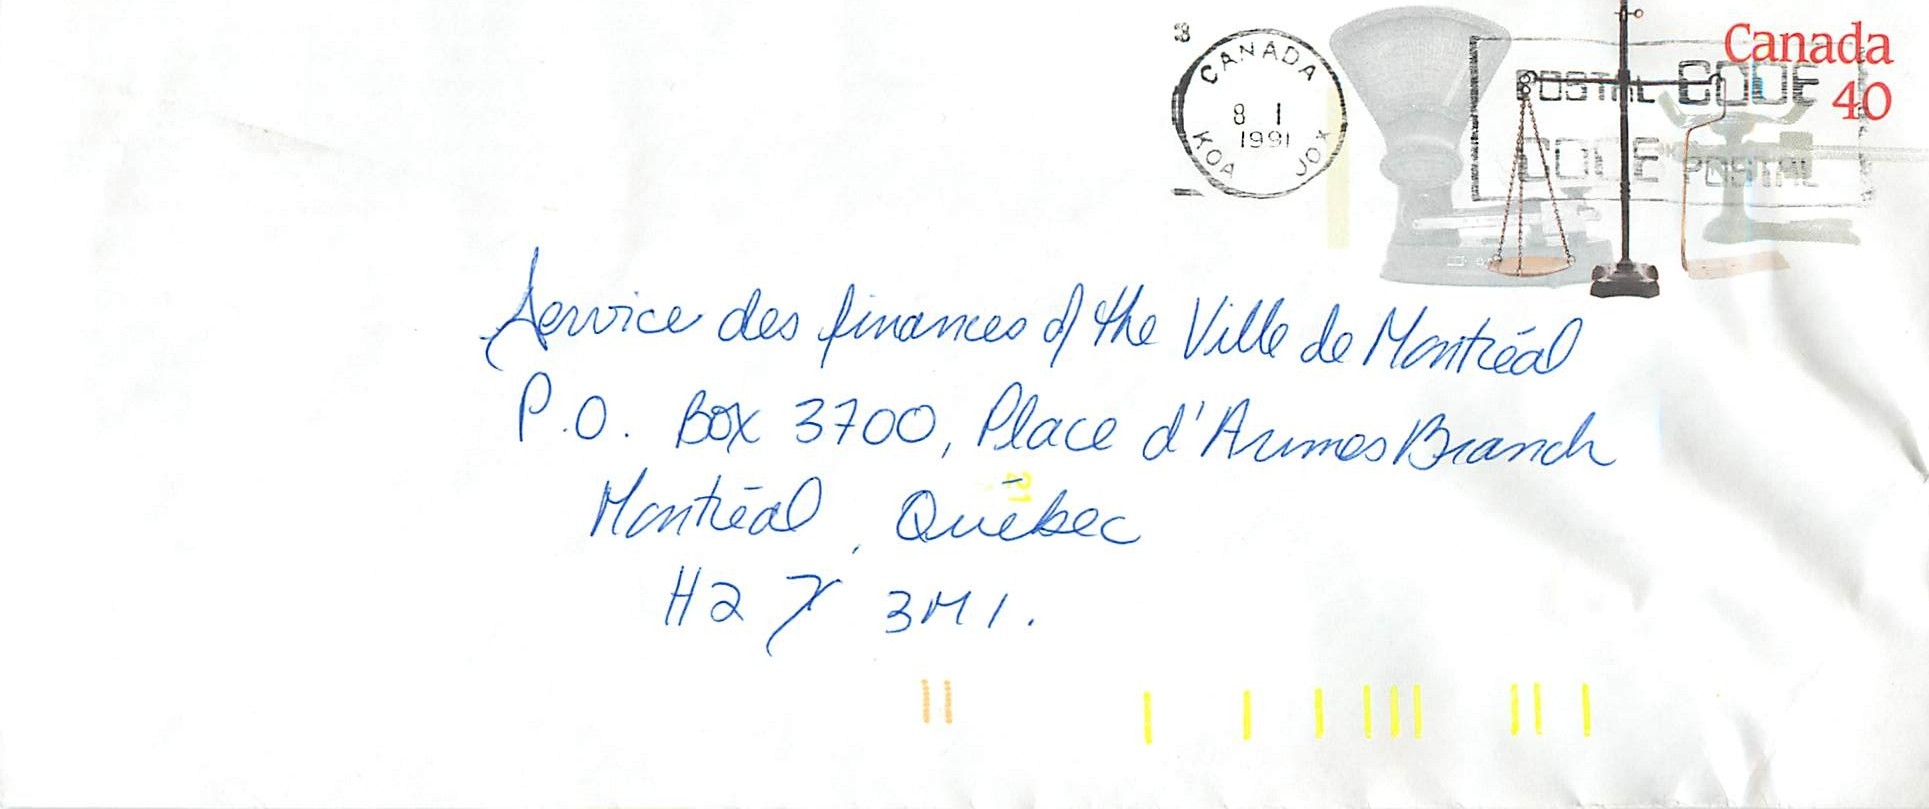 Canada
40
CANADA
8 1
1991
K0A J0X
POSTAL CODE
CODE POSTAL
Service des finances of the Ville de Montréal
P.O. Box 3700, Place d'Armes Branch
Montréal, Québec
H2Y 3M1.